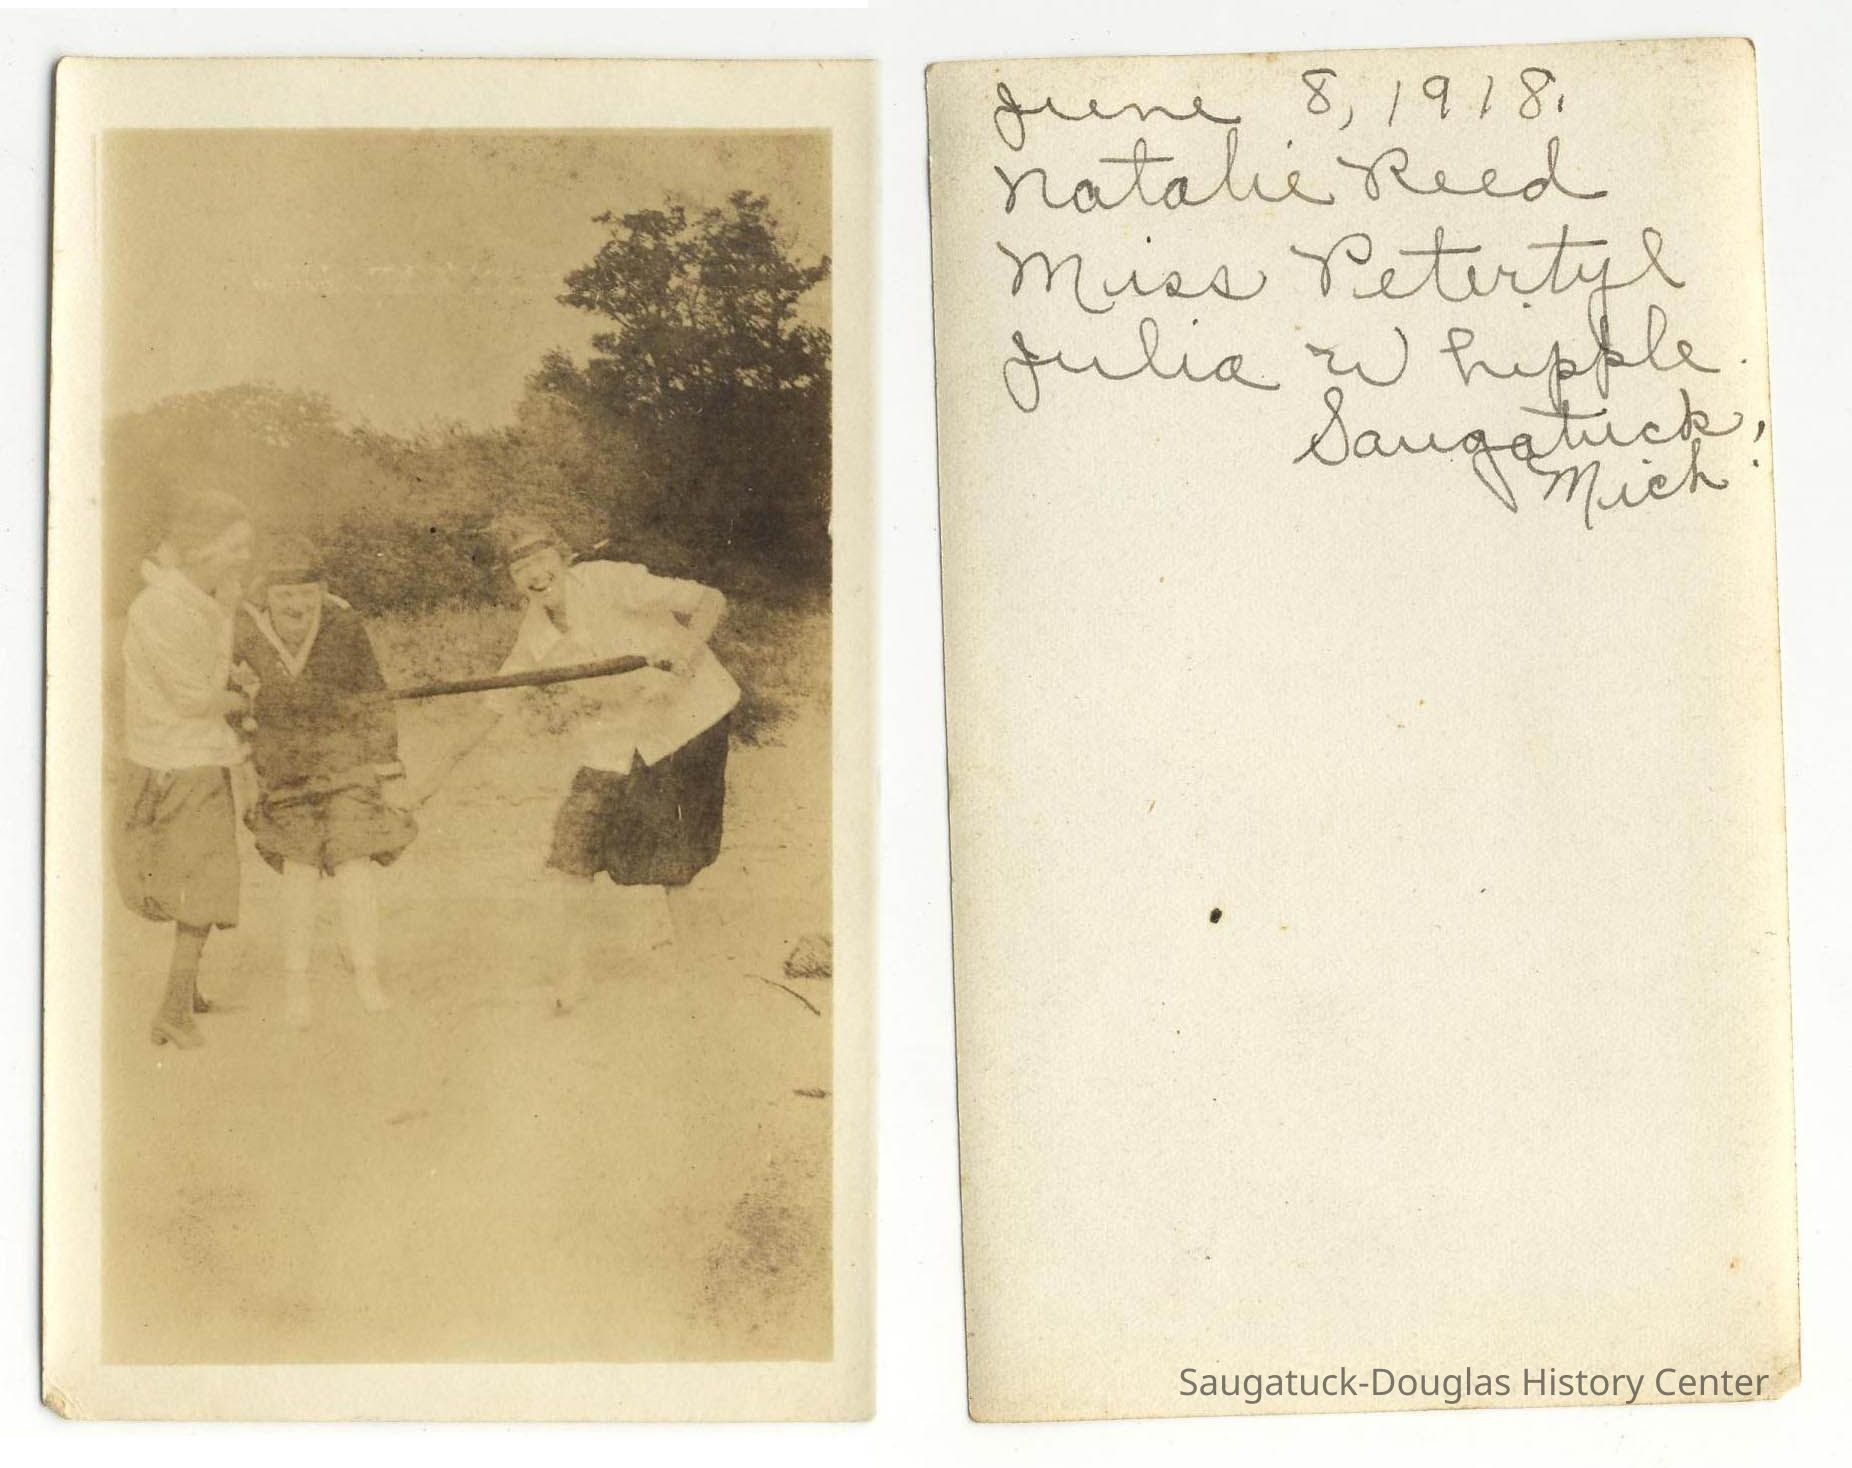 June 8, 1918.
Natalie Reed
Miss Petertyl
Julia Whipple.
Saugatuck,
Mich.
Saugatuck-Douglas History Center